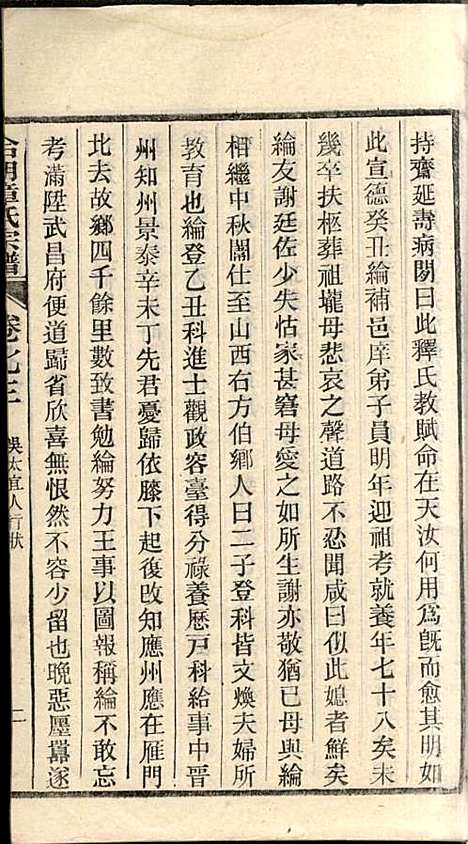 持齋延壽病閧曰此釋氏教賦命在天汝何用爲旣而愈其明如
此宣德癸丑綸補邑庠弟子員明年迎祖考就養年七十八矣未
幾卒扶柩葬祖壠母悲哀之聲道路不忍聞咸曰似此媳者鮮矣
綸友謝廷佐少失怙家甚窘母愛之如所生謝亦敬猶已母與綸
相繼中秋闈仕至山西右方伯鄉人曰二子登科皆文煥夫婦所
教育也綸登乙丑科進士觀政容臺得分祿養歷戸科給事中晋
州知州景泰辛未丁先君憂歸依膝下起復改知應州應在雁門
北去故鄉四千餘里數致書勉綸努力王事以圖報稱綸不敢忘
考滿陞武昌府便道歸省欣喜無恨然不容少留也晚惡壓囂遂
章氏宗譜
卷之三
吳太宜人行狀
二